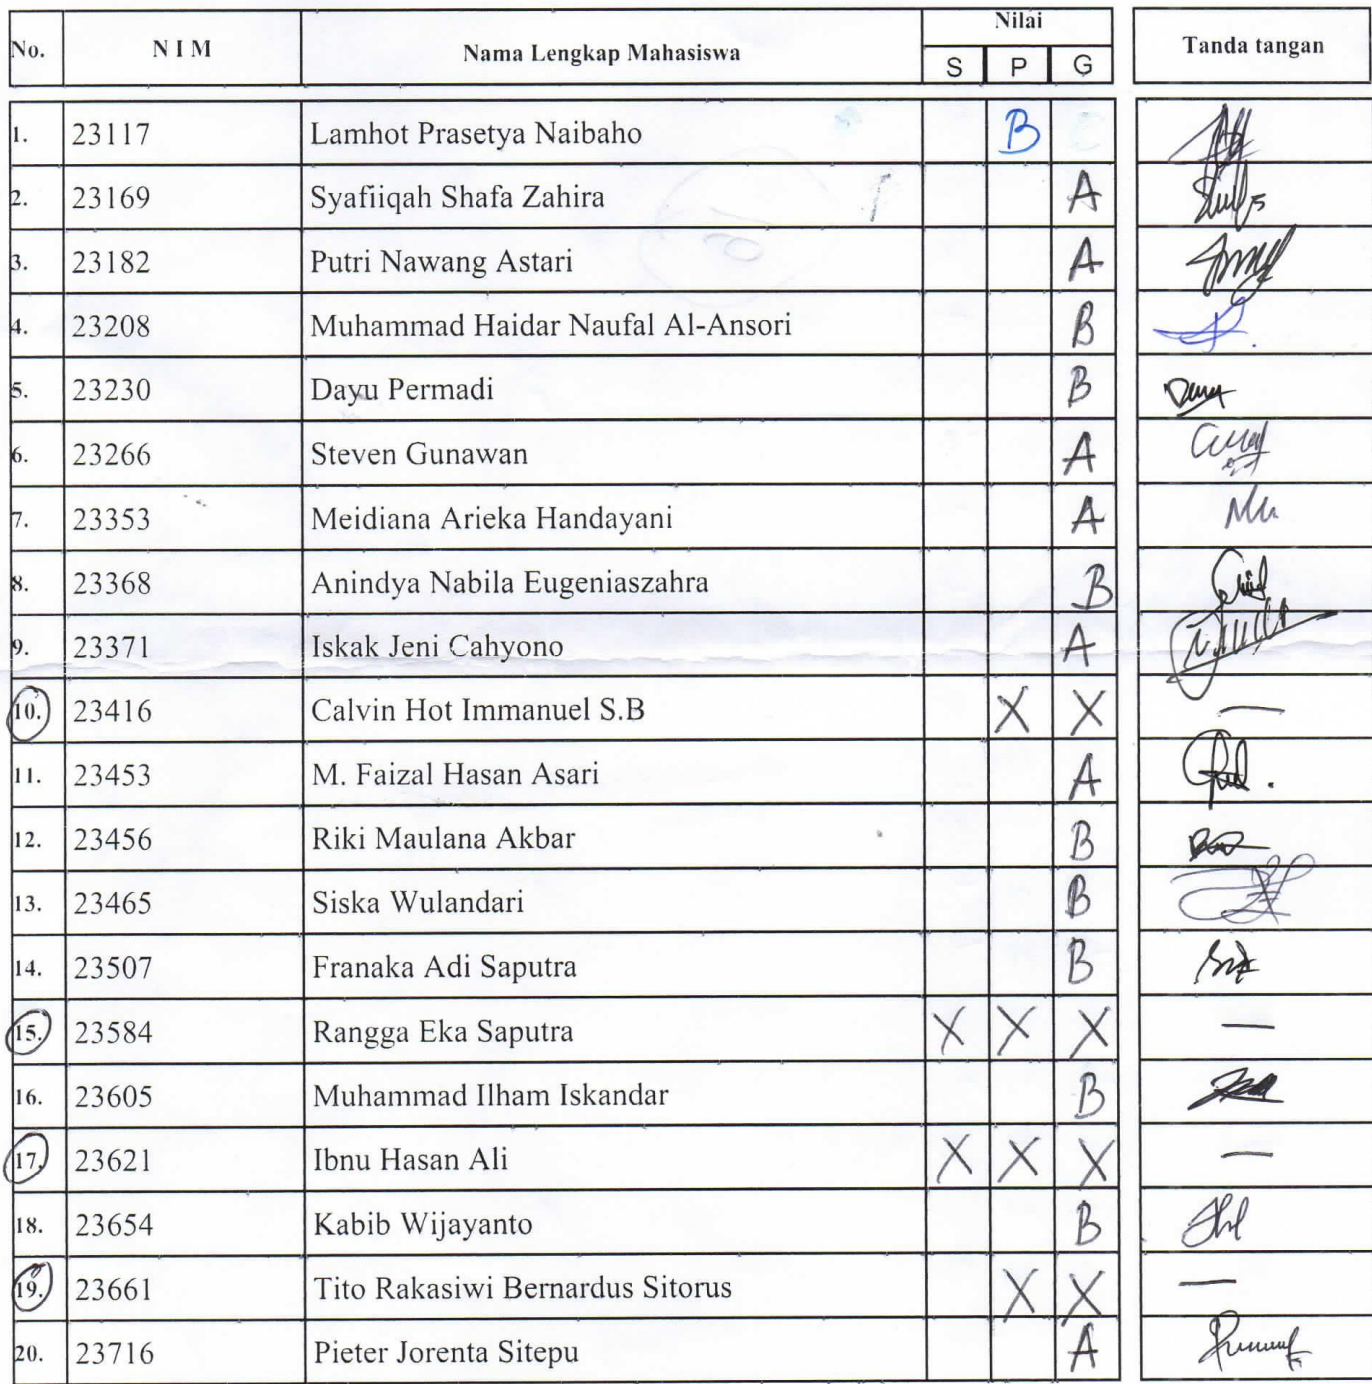 No. N I M Nama Lengkap Mahasiswa Nilai Tanda tangan
S P G
1. 23117 Lamhot Prasetya Naibaho B
2. 23169 Syafiiqah Shafa Zahira A
3. 23182 Putri Nawang Astari A
4. 23208 Muhammad Haidar Naufal Al-Ansori B
5. 23230 Dayu Permadi B
6. 23266 Steven Gunawan A
7. 23353 Meidiana Arieka Handayani A
8. 23368 Anindya Nabila Eugeniaszahra B
9. 23371 Iskak Jeni Cahyono A
10. 23416 Calvin Hot Immanuel S.B X X —
11. 23453 M. Faizal Hasan Asari A
12. 23456 Riki Maulana Akbar B
13. 23465 Siska Wulandari B
14. 23507 Franaka Adi Saputra B
15. 23584 Rangga Eka Saputra X X X —
16. 23605 Muhammad Ilham Iskandar B
17. 23621 Ibnu Hasan Ali X X X —
18. 23654 Kabib Wijayanto B
19. 23661 Tito Rakasiwi Bernardus Sitorus X X —
20. 23716 Pieter Jorenta Sitepu A